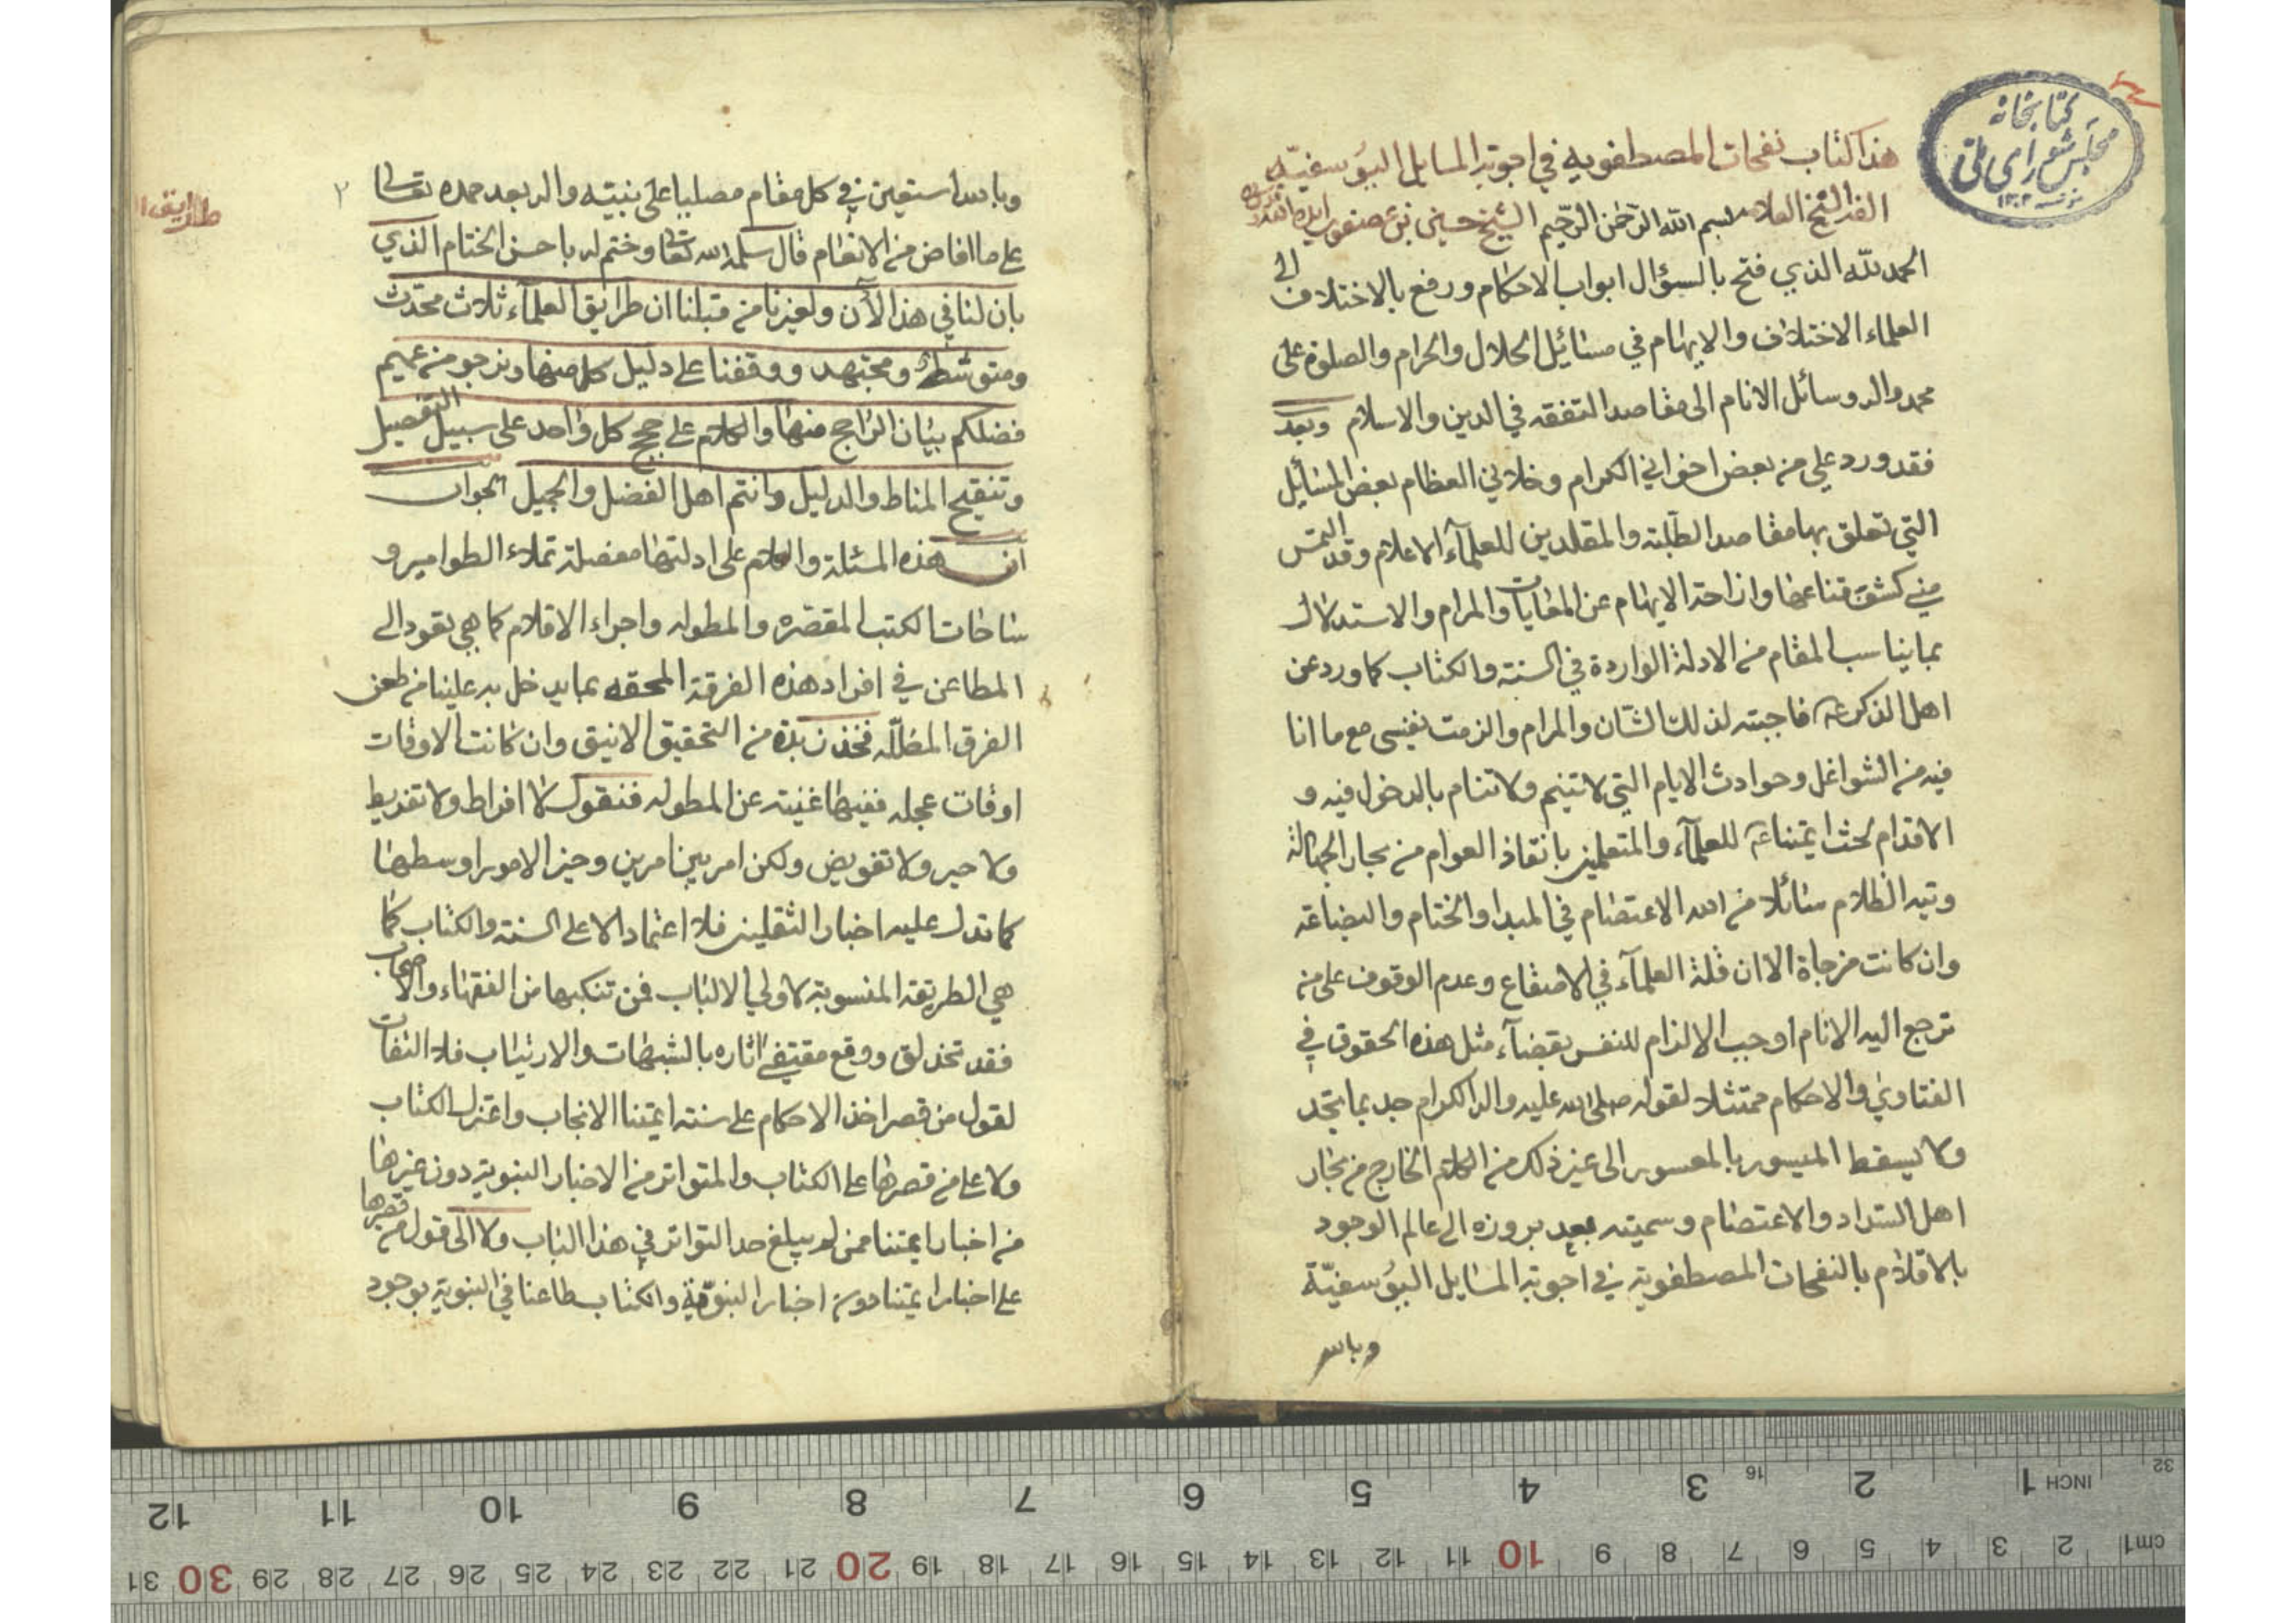 كتابخانه
مجلس شورای ملی
١٣٠٢
هذا كتاب نفحات المصطفويه في اجوبة المسايل اليؤسفيّه
الشيخ العلامه بسم الله الرّحمن الرّحيم الشيخ حسين بن عصفور ايده الله
الحمد للّه الذي فتح بالسؤال ابواب الاحكام ورفع بالاختلاف الى
العلماء الاختلاف والابهام في مسائيل الحلال والحرام والصلوة على
محمد واله وسائل الانام الى مقاصد التفقه في الدين والاسلام وبعد
فقد ورد علي من بعض اخواني الكرام وخلاني العظام بعض المسائيل
التي تعلق بها مقاصد الطلبة والمقلدين للعلمآء الاعلام وقد التمس
مني كشف قناعها وازاحة الابهام عن الغايات والمرام والاستدلال
بما يناسب المقام من الادلة الواردة في السنة والكتاب كما ورد عن
اهل الذكر عم فاجبته لذلك الشان والمرام والزمت نفسي مع ما انا
فيه من الشواغل وحوادث الايام التي لا تنيم ولا تنام بالدخول فيه و
الاقدام لحث ايمتنا عم للعلمآء والمتعلمين بانقاذ العوام من بحار الجهالة
وتيه الظلام سائلا من الله الاعتصام في المبدا والختام والبضاعة
وان كانت مزجاة الا ان قلة العلمآء في الاصقاع وعدم الوقوف على من
ترجع اليه الانام اوجب الالزام للنفس بقضآء مثل هذه الحقوق في
الفتاوي والاحكام ممتثلا لقوله صلى الله عليه واله الكرام جد بما تجد
ولا يسقط الميسور بالمعسور الى غير ذلك من الكلام الخارج من بحار
اهل السداد والاعتصام وسميته بعد بروزه الى عالم الوجود
بالاقلام بالنفحات المصطفوية في اجوبة المسايل اليؤسفيّة
وبالله
وبالله استعين في كل مقام مصليا على نبيه واله بعد حمده تعالى
٢
طرايق ا
على ما افاض من الانعام قال سلمه الله تعالى وختم له باحسن الختام الذي
بان لنا في هذا الآن ولغيرنا من قبلنا ان طرايق العلمآء ثلاث محدث
ومتوسط ومجتهد ووقفنا على دليل كل منها ونرجو من عميم
فضلكم بيان الراجح منها والكلام على حجج كل واحد على سبيل التفصيل
وتنقيح المناط والدليل وانتم اهل الفضل والجميل الجواب
ان هذه المسئلة والكلام على ادلتها مفصلة تملاء الطوامير و
ساحات الكتب المقصره والمطوله واجراء الاقلام كما هي يقود الى
المطاعن في افراد هذه الفرقة المحقه بما يدخل به علينا من طعن
الفرق المضلّه فخذ نبذة من التحقيق الانيق وان كانت الاوقات
اوقات عجله ففيها غنية عن المطوله فنقول لا افراط ولا تفريط
ولا جبر ولا تفويض ولكن امر بين امرين وخير الامور اوسطها
كما تدل عليه اخبار الثقلين فلا اعتماد الا على السنة والكتاب كما
هي الطريقة المنسوبة لاولي الالباب فمن تنكبها من الفقهاء والاصحاب
فقد تخذلق ووقع مقتفي اثاره بالشبهات والارتياب فلا التفات
لقول من قصر اخذ الاحكام على سنة ايمتنا الانجاب واعتزل الكتاب
ولا على من قصرها على الكتاب والمتواتر من الاخبار النبوية دون غيرها
من اخبار ايمتنا ممن لم يبلغ حد التواتر في هذا الباب ولا الى قول من قصرها
على اخبار ايمتنا دون اخبار النبوّية والكتاب طاعنا في النبوية بوجود
INCH 1 2 3 4 5 6 7 8 9 10 11 12
16 32
cm 1 2 3 4 5 6 7 8 9 10 11 12 13 14 15 16 17 18 19 20 21 22 23 24 25 26 27 28 29 30 31